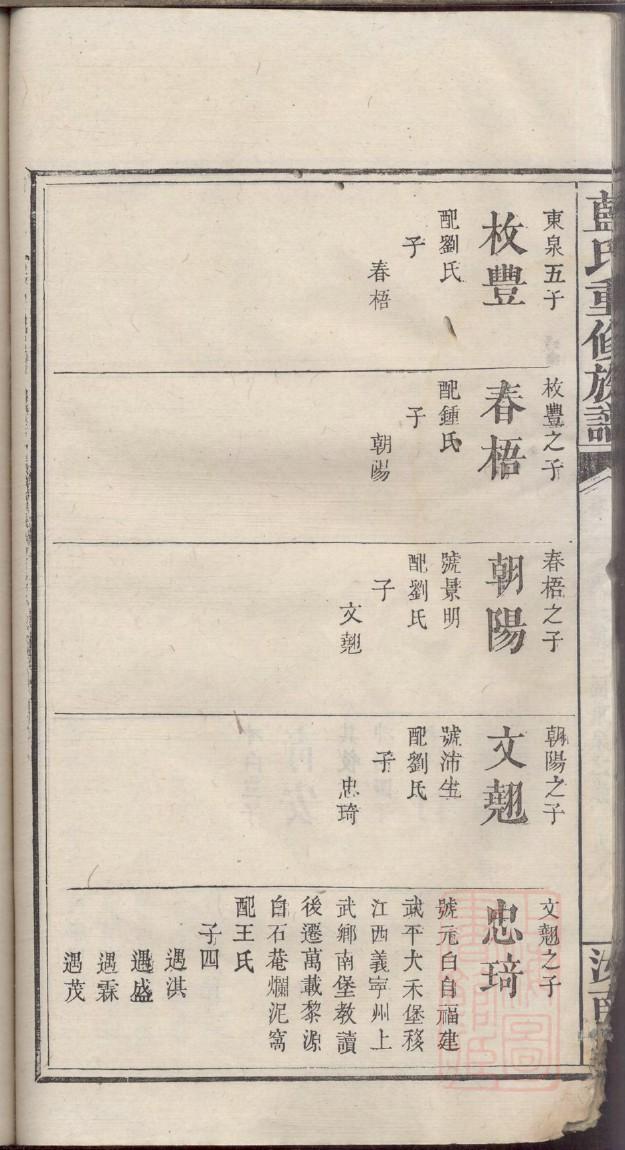 藍氏重修族譜
東泉五子
枚豐
配劉氏
子
春梧
枚豐之子
春梧
配鍾氏
子
朝陽
春梧之子
朝陽
號景明
配劉氏
子
文翹
朝陽之子
文翹
號沛生
配劉氏
子
忠琦
文翹之子
忠琦
號元白自福建
武平大禾堡移
江西義寧州上
武鄉南堡教讀
後遷萬載黎源
白石菴爛泥窩
配王氏
子四
遇淇
遇盛
遇霖
遇茂